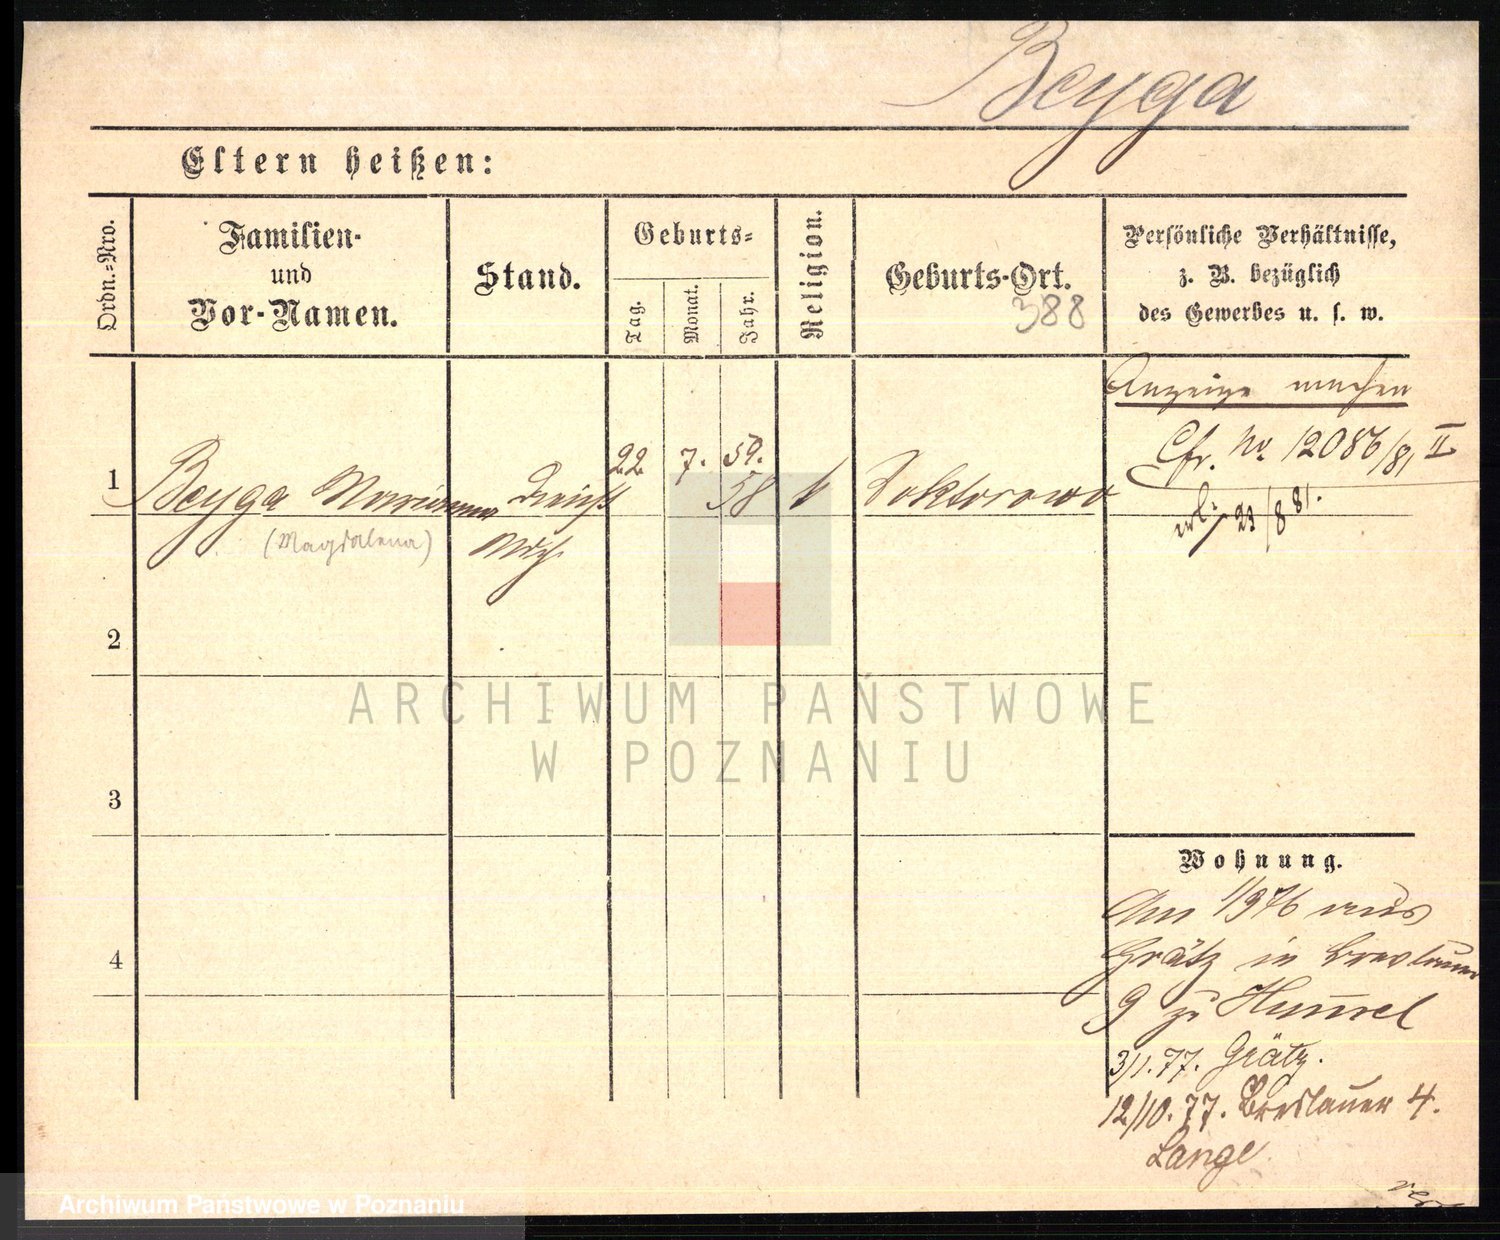 Beyga
Eltern heißen:
Ordn.-Nro.
Familien-
und
Vor-Namen.
Stand.
Geburts-
Tag.
Monat.
Jahr.
Religion.
Geburts-Ort.
388
Persönliche Verhältnisse,
z. B. bezüglich
des Gewerbes u. s. w.
Anzeige machen
Cfr. No. 12086/81 II
23/8 81.
1 Beyga Marianna Dienst 22 7. 59. k Doktorowo
58
(Magdalena) Mdch.
2
3
4
ARCHIWUM PAŃSTWOWE
W POZNANIU
Wohnung.
Am 1/9 76 aus
Grätz in Breslauer
9 zu Hummel
3/1. 77. Grätz.
12/10. 77. Breslauer 4.
Lange
Archiwum Państwowe w Poznaniu